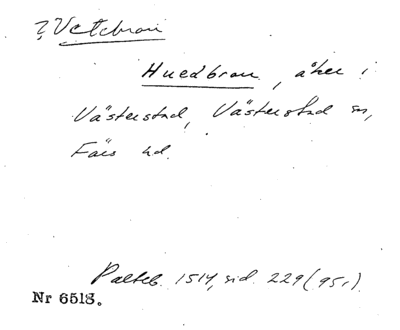 ? Vetebran
Huedbran, åker i
Västerstad, Västerstad sn,
Färs hd.
Palteb. 1514, sid. 229 (95r).
Nr 6513.